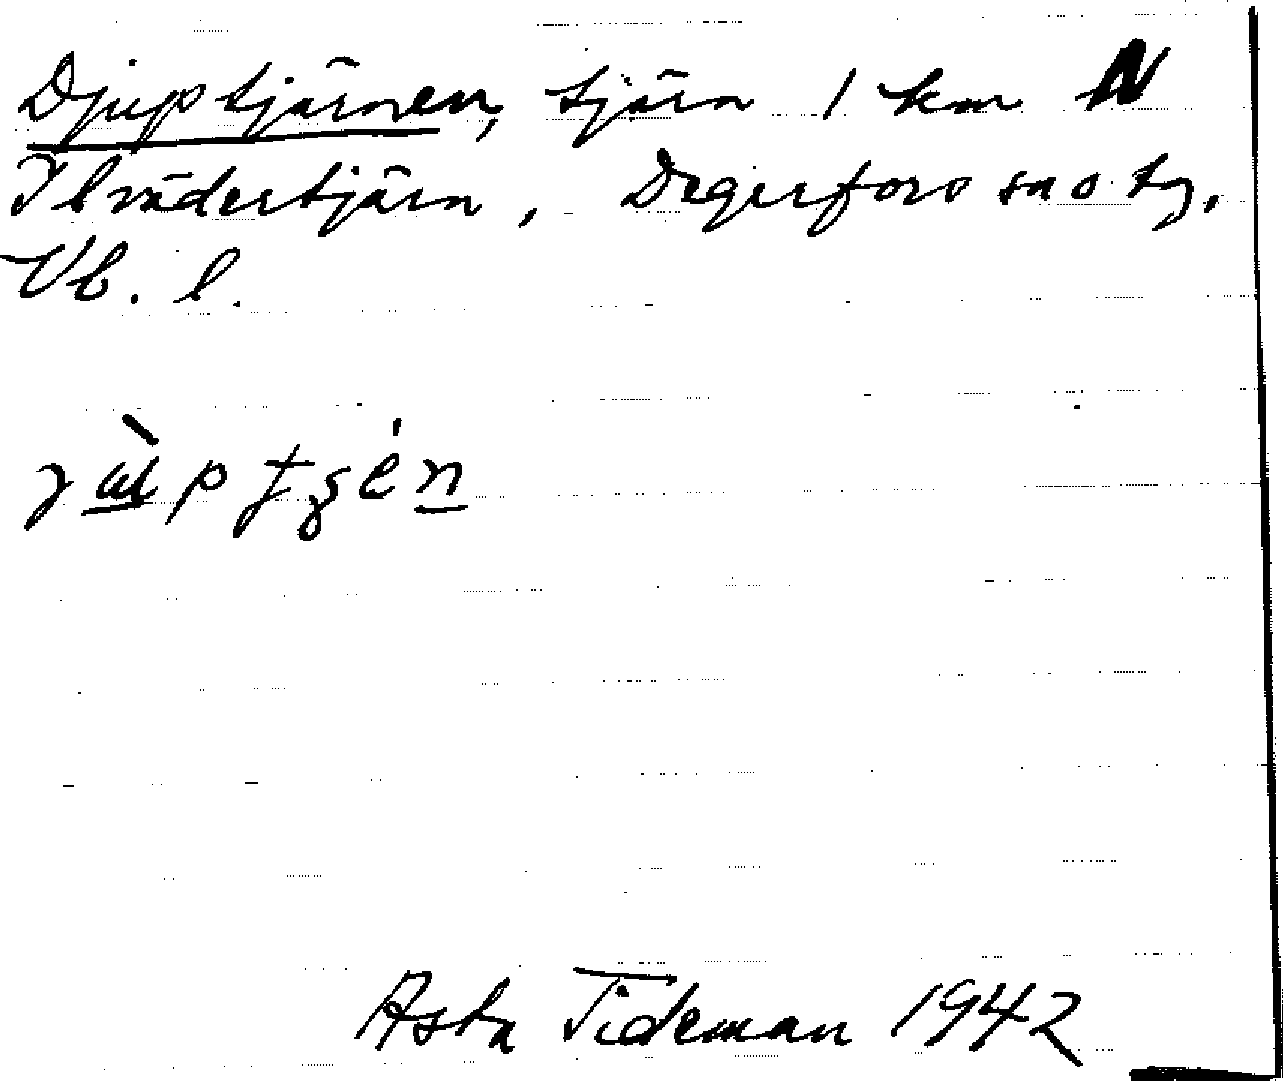 Djuptjärnen, tjärn 1 km N
Ilvädertjärn, Degerfors sn o tg,
Vb. l.
Asta Tideman 1942